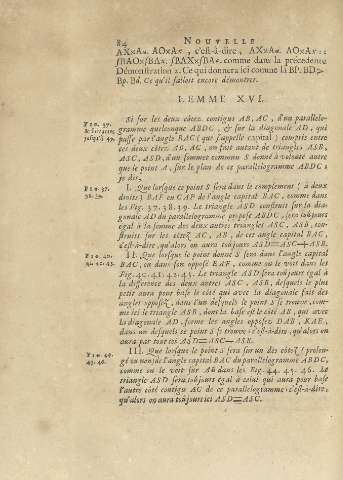 84 NOUVELLE
démonstration 2. Ce qui donnera ici comme là BP. BD>
Bp. Bd. Ce qu'il falloit encore démontrer.
LEMME XVI.
FIG. 37.
Si sur les deux côtez contigus AB, AC, d'un parallelo-
gramme quelconque ABDC, & sur la diagonale AD, qui
passe par l'angle BAC (que j'appelle capital) compris entre
ces deux côtez AB, AC, on fait autant de triangles ASB,
ASC, ASD, d'un sommet commun S donné à volonté autre
que le point A, sur le plan de ce parallelogramme ABDC:
je dis,
FIG. 37.
38. 39.
I. Que lorsque ce point S sera dans le complement (à deux
droites) BAF ou CAP de l'angle capital BAC, comme dans
les Fig. 37. 38. 39. Le triangle ASD construit sur la dia-
gonale AD du parallelogramme proposé ABDC, sera toûjours
égal à la somme des deux autres triangles ASC, ASB, con-
struits sur les côtez AC, AB, de cet angle capital BAC;
c'est-à-dire, qu'alors on aura toûjours ASD=ASC+ASB.
FIG. 40.
41. 42. 43.
II. Que lorsque le point donné S sera dans l'angle capital
BAC, ou dans son opposé EAF, comme on le voit dans les
Fig. 40. 41. 42. 43. Le triangle ASD sera toûjours égal à
la difference des deux autres ASC, ASB, desquels le plus
petit aura pour base le côté qui avec la diagonale fait des
angles opposez, dans l'un desquels le point S se trouve, com-
me ici le triangle ASB, dont la base est le côté AB, qui avec
la diagonale AD, forme les angles opposez DAB, KAE,
dans un desquels ce point S se trouve: c'est-à-dire, qu'alors on
aura par tout ici ASD=ASC-ASB.
FIG. 44.
45. 46.
III. Que lorsque le point S sera sur un des côtez (prolon-
gé ou non) de l'angle capital BAC du parallelogramme ABDC,
comme on le voit sur AB dans les Fig. 44. 45. 46. Le
triangle ASD sera toûjours égal à celui qui aura pour base
l'autre côté contigu AC de ce parallelogramme: c'est-à-dire,
qu'alors on aura toûjours ici ASD=ASC.